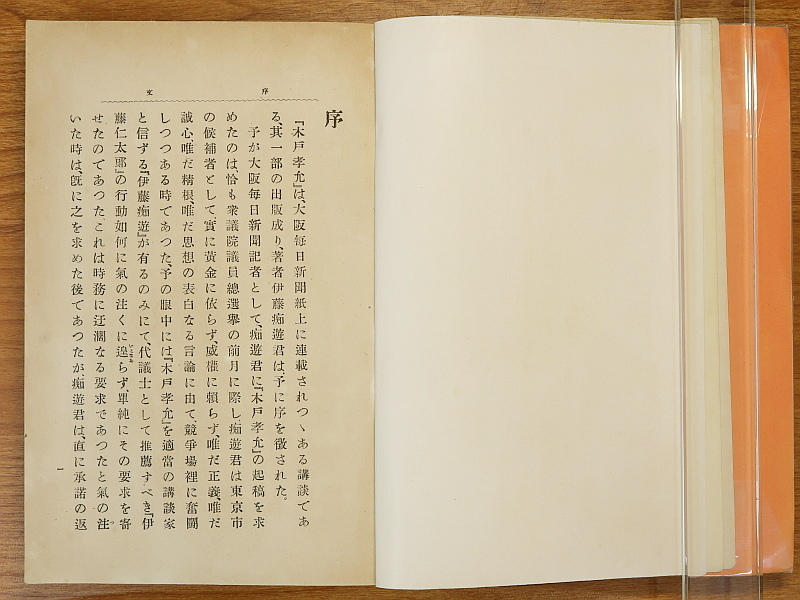 序文
序
『木戸孝允』は、大阪毎日新聞紙上に連載されつゝある講談であ
る、其一部の出版成り、著者伊藤痴遊君は、予に序を徴された。
予が大阪毎日新聞記者として、痴遊君に『木戸孝允』の起稿を求
めたのは恰も衆議院議員總選擧の前月に際し痴遊君は東京市
の候補者として、實に黄金に依らず、威權に頼らず、唯だ正義、唯だ
誠心、唯だ精根、唯だ思想の表白なる言論に由て、競爭場裡に奮鬪
しつつある時であつた、予の眼中には『木戸孝允』を適當の講談家
と信ずる『伊藤痴遊』が有るのみにて、代議士として推薦すべき『伊
藤仁太郎』の行動如何に氣の注くに遑らず、單純にその要求を寄
せたのであつた、これは時務に迂濶なる要求であつたと氣の注
いた時は、旣に之を求めた後であつたが、痴遊君は、直に承諾の返
一